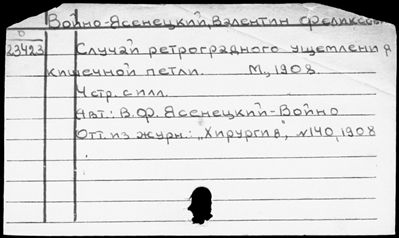 Войно-Ясенецкий, Валентин Феликсович
23423
Случай ретроградного ущемления
кишечной петли. М., 1908.
4 стр. с илл.
Авт.: В.Ф. Ясенецкий-Войно
Отт. из журн.: „Хирургия", №140, 1908